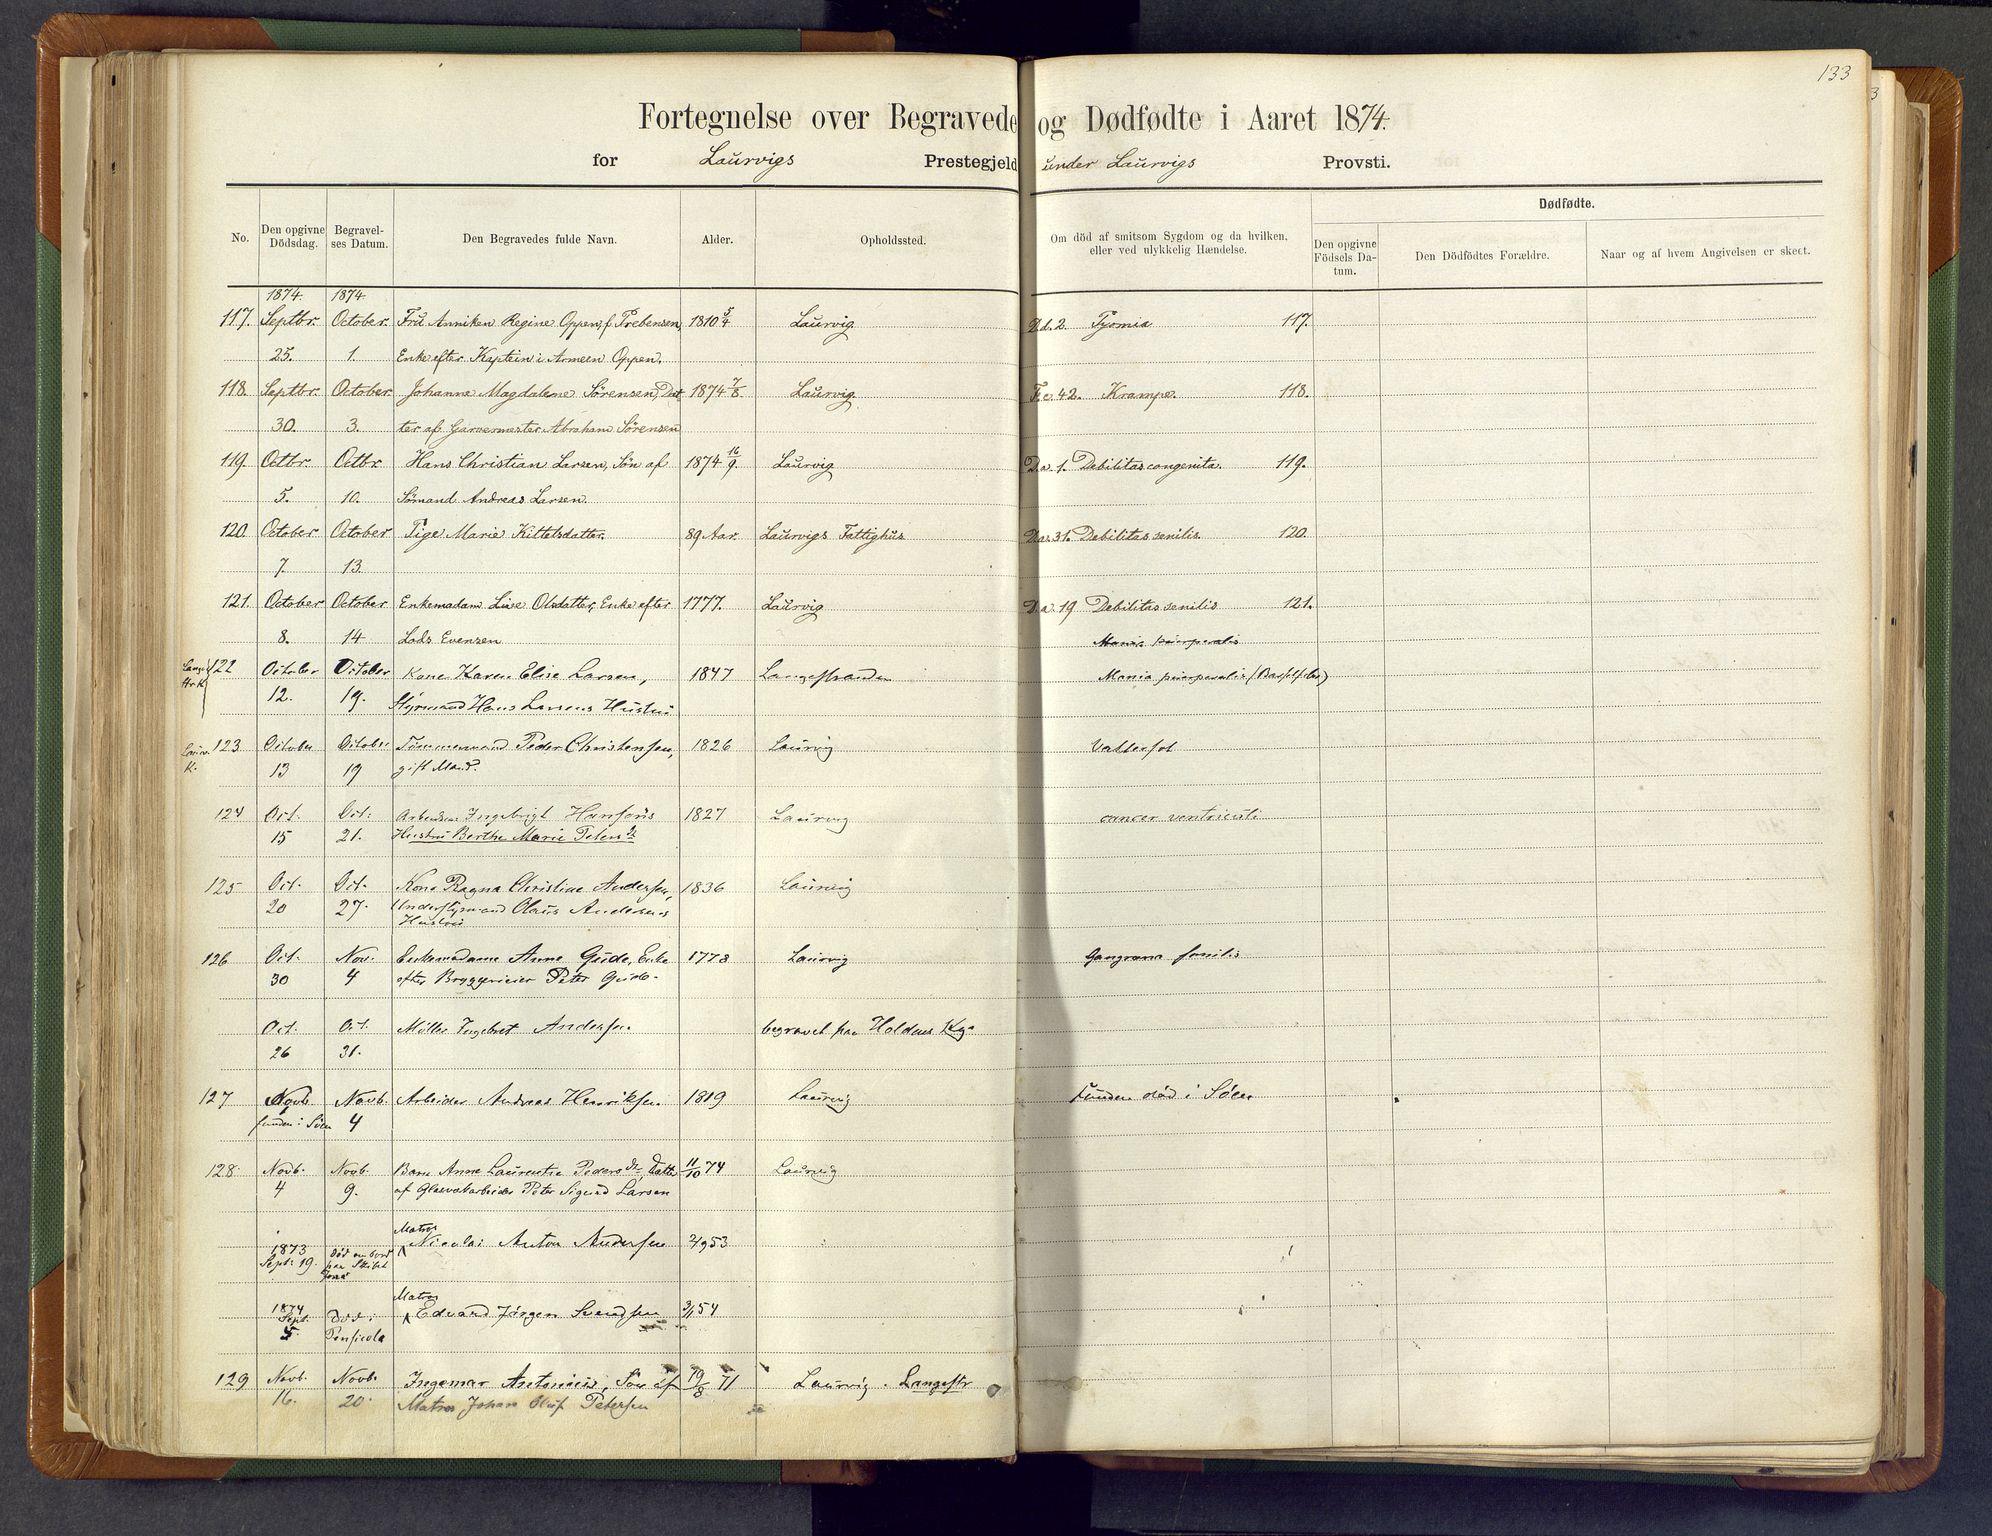 133
3
Fortegnelse over Begravede og Dødfødte i Aaret 1874.
for Laurvigs Prestegjeld under Laurvigs Provsti.
Dødfødte.
No. Den opgivne Dödsdag. Begravelses Datum. Den Begravedes fulde Navn. Alder. Opholdssted. Om död af smitsom Sygdom og da hvilken, eller ved ulykkelig Hændelse. Den opgivne Födsels Datum. Den Dödfödtes Forældre. Naar og af hvem Angivelsen er skeet.
1874 1874
117. Septbr. October. Fru Anniken Regine Oppen, f. Prebensen, 1810 5/4 Laurvig D.d. 2. Pyomia 117.
25. 1. Enke efter Kaptein i Armeen Oppen.
118. Septbr. October Johanne Magdalene Sørensen, Dat 1874 7/8. Laurvig F.c. 42. Krampe. 118.
30. 3. ter af Garvermester Abraham Sørensen
119. Octbr. Octbr Hans Christian Larsen, Søn af 1874 16/9. Laurvig D.a. 1. Debilitas congenita. 119.
5. 10. Sømand Andreas Larsen.
120. October October Pige Marie Kittelsdatter. 89 Aar. Laurvigs Fattighus D.a. 31. Debilitas senilis. 120.
7. 13.
121. October October Enkemadam Line Olsdatter, Enke efter 1777. Laurvig D.a. 19 Debilitas senilis 121.
8. 14 Lods Evensen Mania puerperalis
122 October October Kone Karen Elise Larsen, 1847 Langestranden Mania puerperalis (Barselfeber)
12. 19. Styrmand Hans Larsens Hustru
Laurv. K. 123 October October Tømmermand Peder Christensen, 1826 Laurvig Vattersot
13 19 gift Mand.
124 Oct. Oct: Arbeidsm: Ingebrigt Hansens 1827 Laurvig cancer ventriculi
15 21. Hustru Berthe Marie Petersdr
125 Oct. Oct. Kone Ragna Christine Andersen, 1836 Laurvig
20 27. Understyrmand Olaus Andersens
Hustru
126 Oct. Nov. Enkemadame Anne Gude, Enke 1778 Laurvig Gangræna senilis
30 4 efter Bryggerieier Peter Gude.
Oct. Oct. Møller Ingebret Andersen begravet paa Holdens Kg.
26 31.
127 Novb. Novb. Arbeider Andreas Henriksen 1819 Laurvig Funden død i Söen
funden i Söen 4
128. Novb. Novb. Barn Anne Laurentze Peders dr, Datter 11/10 74 Laurvig
4 9. af Glasværkarbeider Peter Sigurd Larsen
Matros
1873 Død om bord Nicolai Anton Andersen 2/9 53
Sept: 19. paa Skibet
Matros
1874 Edvard Jørgen Svendsen 3/1 54
Sept. Død i
5. Pensicola
129 Novb. Novb. Ingemar Antonius, Søn af 19/8 71 Laurvig. Langestr
16. 20. Matros Johan Oluf Petersen